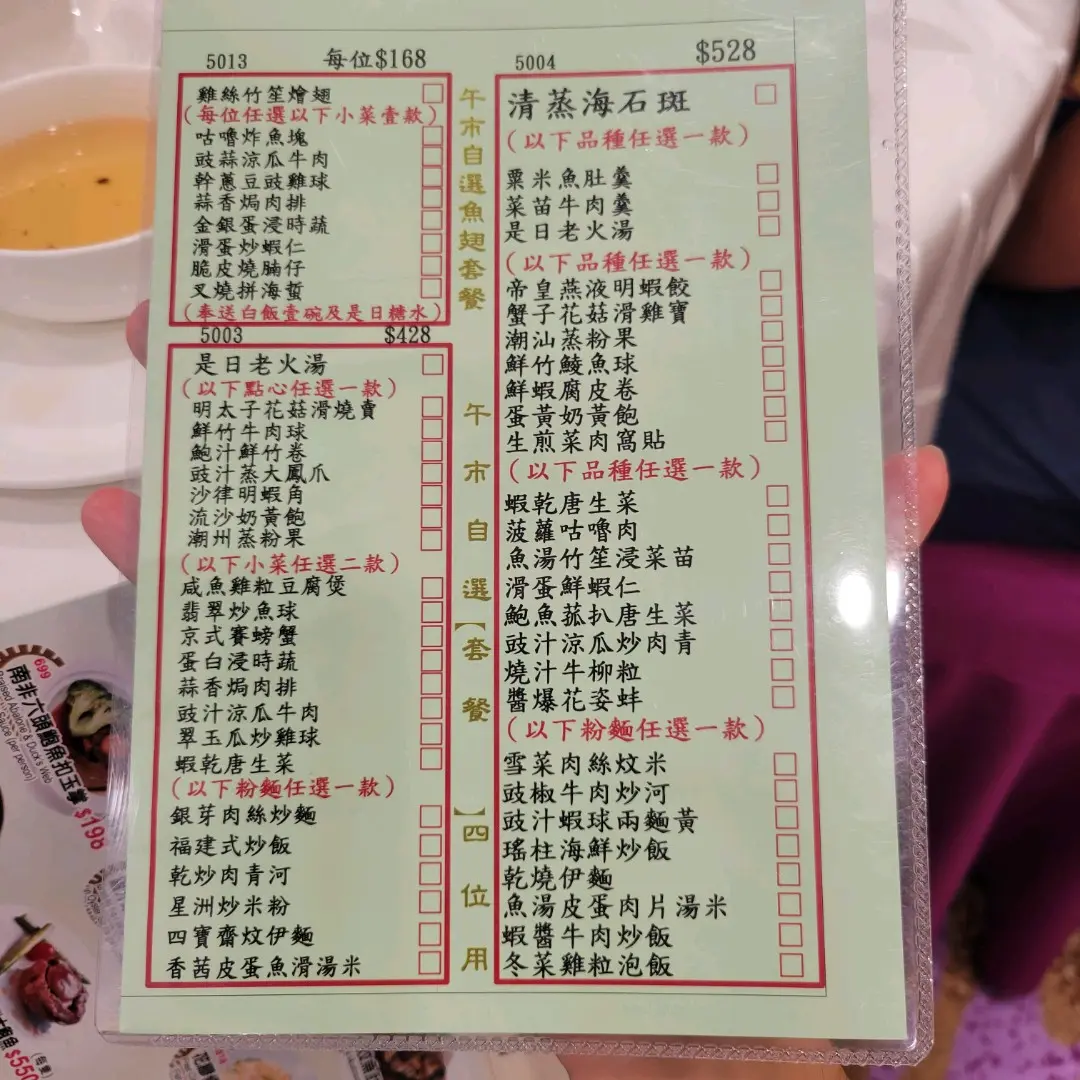 5013 每位$168
雞絲竹笙燴翅
(每位任選以下小菜壹款)
咕嚕炸魚塊
豉蒜涼瓜牛肉
幹蔥豆豉雞球
蒜香焗肉排
金銀蛋浸時蔬
滑蛋炒蝦仁
脆皮燒腩仔
叉燒拼海蜇
(奉送白飯壹碗及是日糖水)
5003 $428
是日老火湯
(以下點心任選一款)
明太子花菇滑燒賣
鮮竹牛肉球
鮑汁鮮竹卷
豉汁蒸大鳳爪
沙律明蝦角
流沙奶黃飽
潮州蒸粉果
(以下小菜任選二款)
咸魚雞粒豆腐煲
翡翠炒魚球
京式賽螃蟹
蛋白浸時蔬
蒜香焗肉排
豉汁涼瓜牛肉
翠玉瓜炒雞球
蝦乾唐生菜
(以下粉麵任選一款)
銀芽肉絲炒麵
福建式炒飯
乾炒肉青河
星洲炒米粉
四寶齋炆伊麵
香茜皮蛋魚滑湯米
午市自選魚翅套餐
午市自選【套餐】四位用
5004 $528
清蒸海石斑
(以下品種任選一款)
粟米魚肚羹
菜苗牛肉羹
是日老火湯
(以下品種任選一款)
帝皇燕液明蝦餃
蟹子花菇滑雞寶
潮汕蒸粉果
鮮竹鯪魚球
鮮蝦腐皮卷
蛋黃奶黃飽
生煎菜肉窩貼
(以下品種任選一款)
蝦乾唐生菜
菠蘿咕嚕肉
魚湯竹笙浸菜苗
滑蛋鮮蝦仁
鮑魚菰扒唐生菜
豉汁涼瓜炒肉青
燒汁牛柳粒
醬爆花姿蚌
(以下粉麵任選一款)
雪菜肉絲炆米
豉椒牛肉炒河
豉汁蝦球兩麵黃
瑤柱海鮮炒飯
乾燒伊麵
魚湯皮蛋肉片湯米
蝦醬牛肉炒飯
冬菜雞粒泡飯
699
南非六頭鮑魚扣玉掌 $198
Braised Abalone & Duck's Web
Sauce (per person)
$550